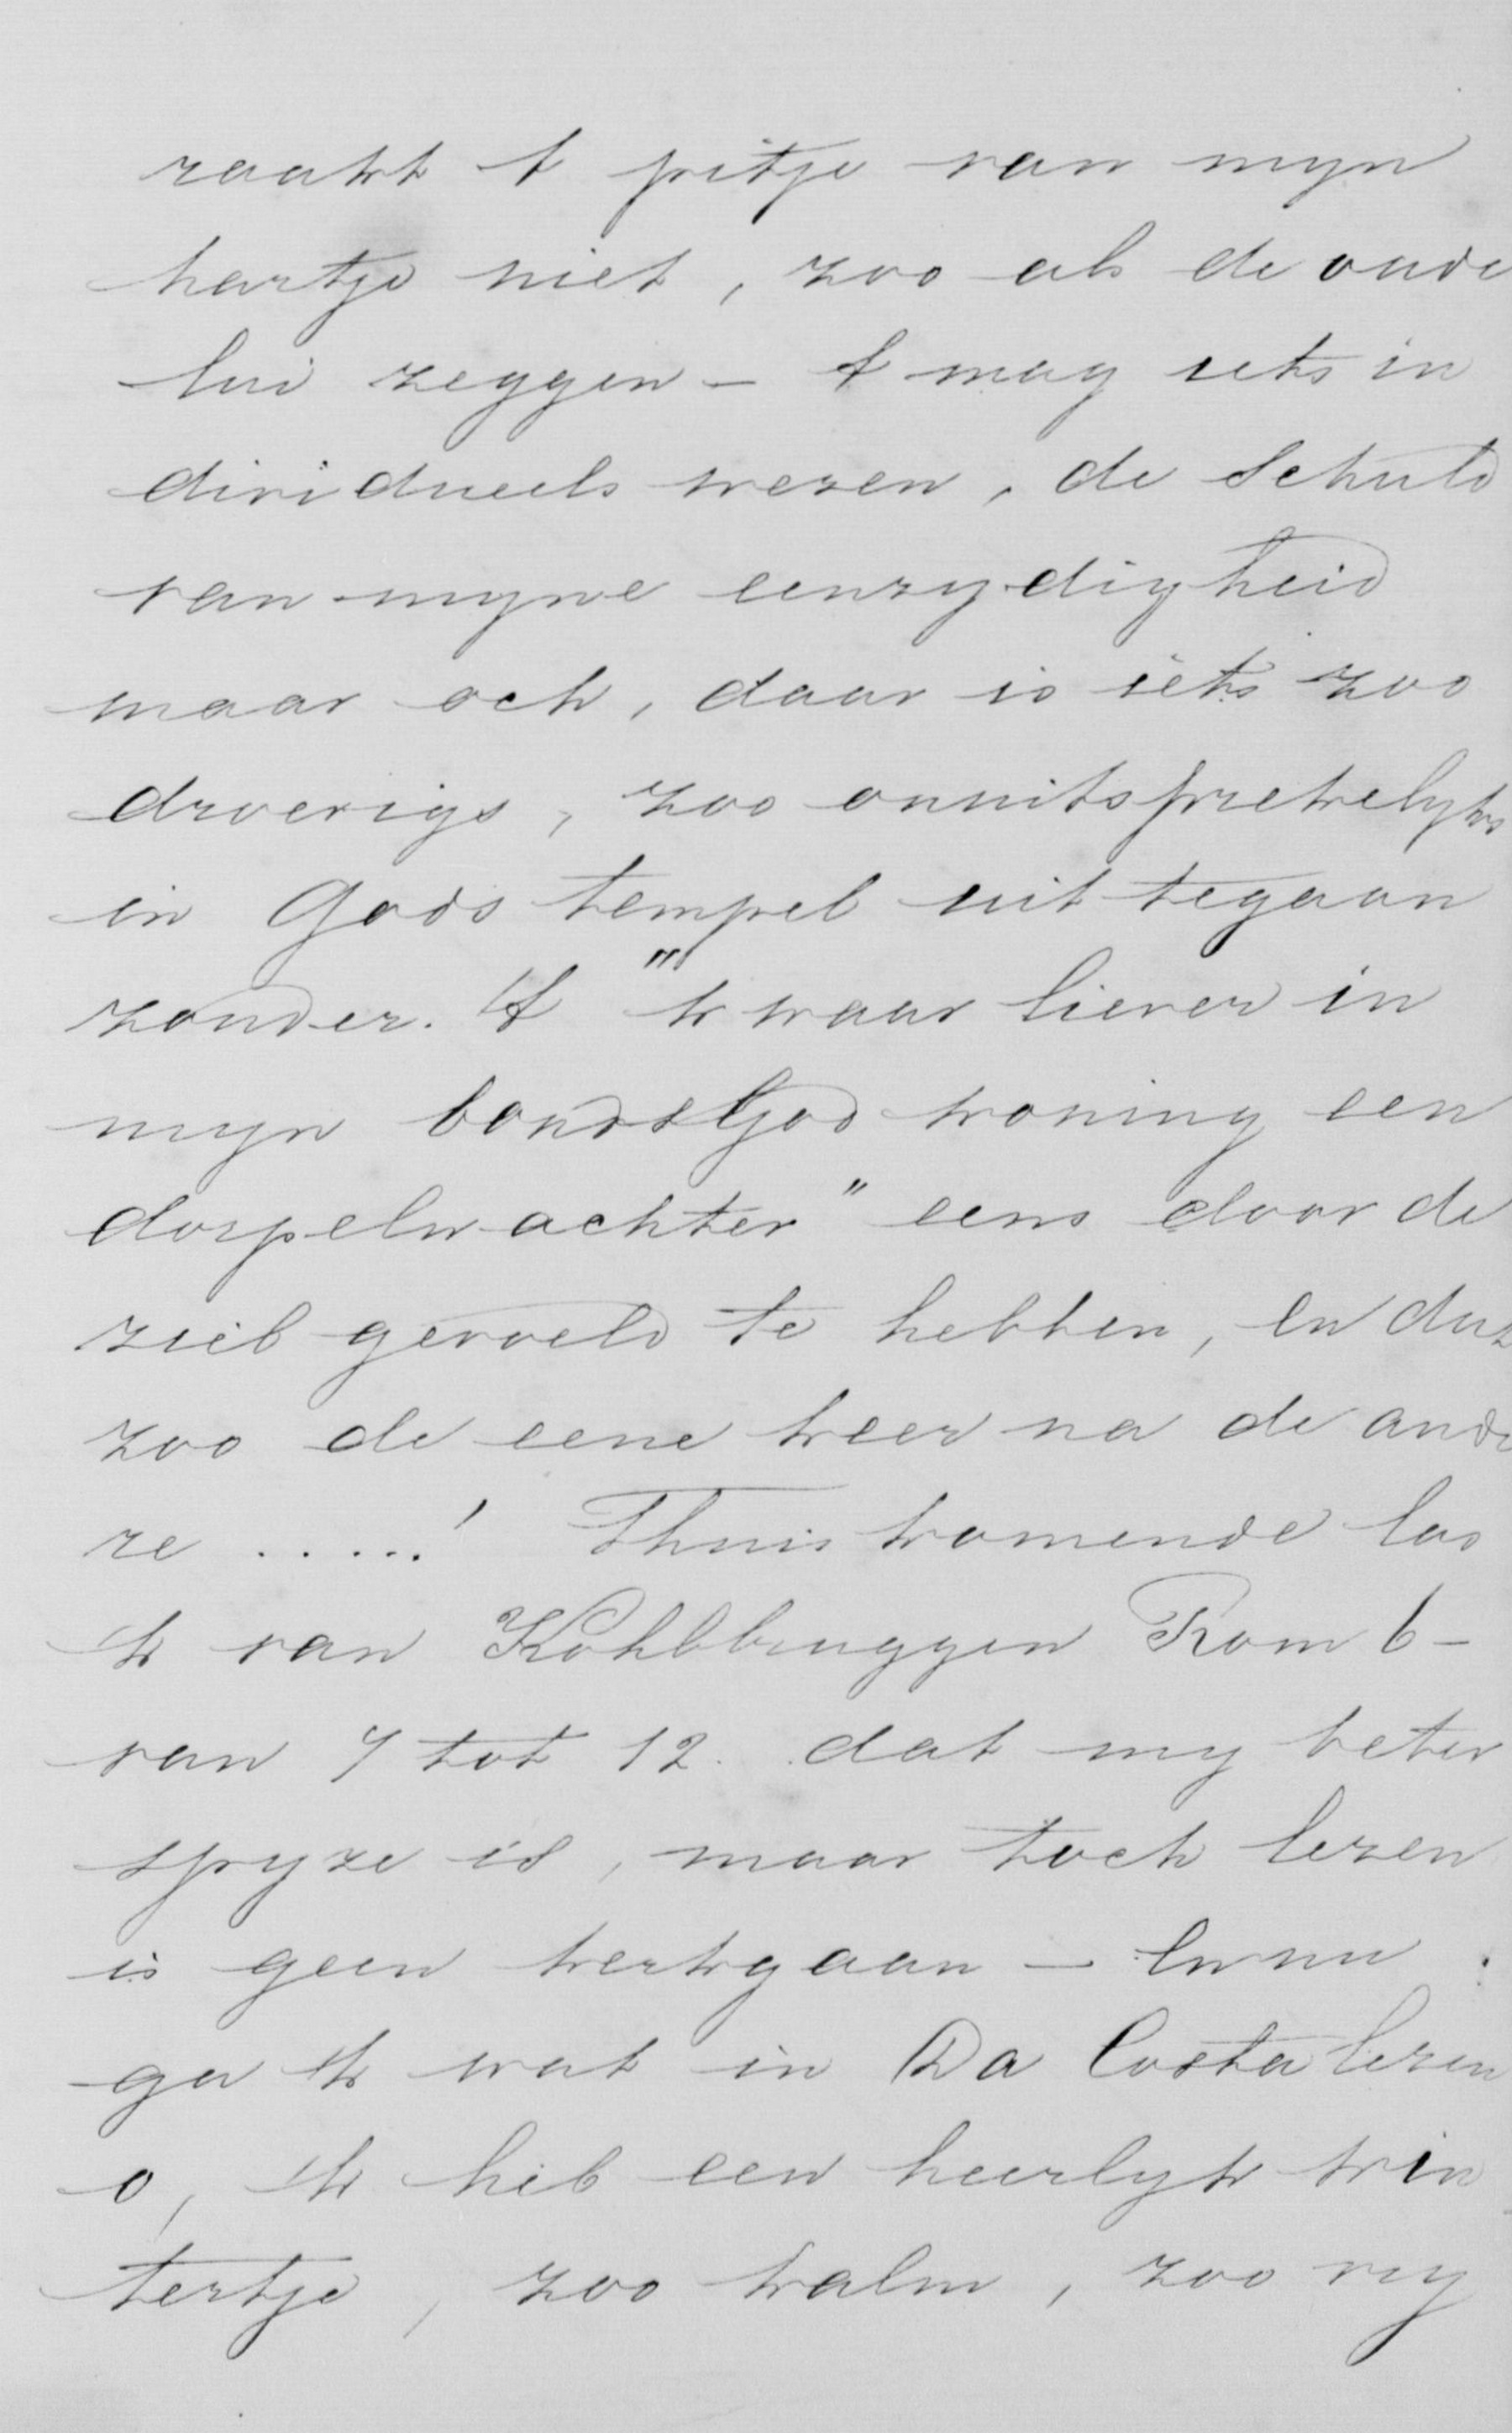 raakt t pitje van myn
hartje niet, zoo als de oude
lui zeggen – t mag iets in
dividueels wezen, de schuld
van myne eenzydigheid
maar och, daar is iets zoo
droevigs, zoo onuitsprekelyks
in Gods tempel uit tegaan
zonder. t "k waar liever in
myn bondsGod woning een
dorpelwachter" eens door de
ziel gevoeld te hebben, en dat
zoo de eene keer na de ande
re .....! Thuis komende las
ik van Kohlbruggen Rom 6 –
van 7 tot 12. dat my beter
spyze is, maar toch lezen
is geen kerkgaan – en nu
ga ik wat in Da Costa lezen
o, ik heb een heerlyk win
tertje, zoo kalm, zoo vry